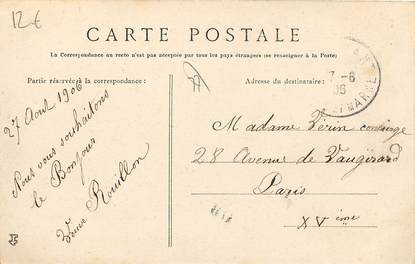 12€
CARTE POSTALE
La Correspondance au recto n'est pas acceptée par tous les pays étrangers (se renseigner à la Poste)
Partie réservée à la correspondance:
Adresse du destinataire:
27 Aout 1906
Nous vous souhaitons
le Bonjour
Veuve Rouillon
7-8
06
MARNE
Madame Vérin concierge
28 Avenue de Vaugirard
Paris
XVième